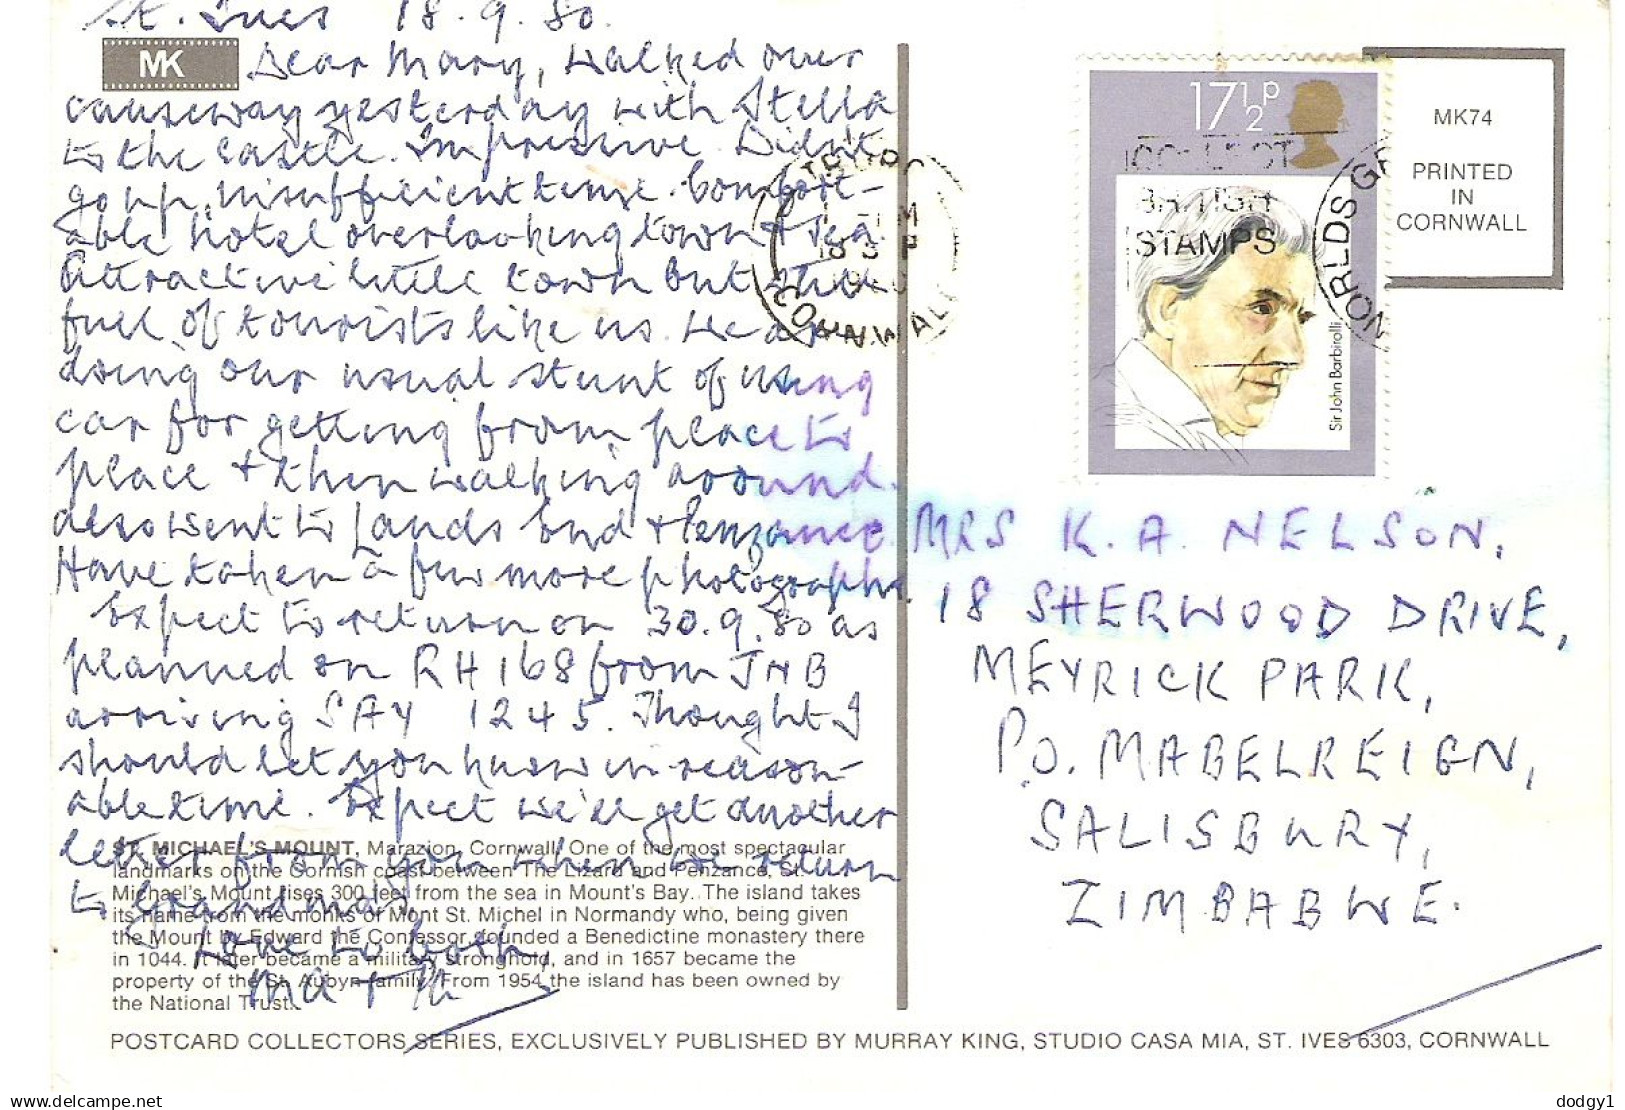 St. Ives 18.9.80.
MK
Dear Mary, Walked over
causeway yesterday with Stella
to the castle. Impressive. Didn't
go up, insufficient time. Comfort-
able hotel overlooking town + sea.
Attractive little town but still
full of tourists like us. We are
doing our usual stunt of using
car for getting from place to
place + then walking around.
Also went to Lands End + Penzance.
Have taken a few more photographs.
Expect to return on 30.9.80 as
planned on RH 168 from JNB
arriving SAY 1245. Thought I
should let you know in reason-
able time. Expect we'll get another
letter from you when we return
to Grandmas.
Love to both,
Ma + Pa
ST. MICHAEL'S MOUNT, Marazion, Cornwall. One of the most spectacular
landmarks on the Cornish coast between The Lizard and Penzance, St.
Michael's Mount rises 300 feet from the sea in Mount's Bay. The island takes
its name from the monks of Mont St. Michel in Normandy who, being given
the Mount by Edward the Confessor founded a Benedictine monastery there
in 1044. It later became a military stronghold, and in 1657 became the
property of the St. Aubyn family. From 1954 the island has been owned by
the National Trust.
POSTCARD COLLECTORS SERIES, EXCLUSIVELY PUBLISHED BY MURRAY KING, STUDIO CASA MIA, ST. IVES 6303, CORNWALL
17½p
COLLECT
BRITISH
STAMPS
Sir John Barbirolli
CORNWALL
MK74
PRINTED
IN
CORNWALL
MRS K. A. NELSON,
18 SHERWOOD DRIVE,
MEYRICK PARK,
P.O. MABELREIGN,
SALISBURY,
ZIMBABWE.
www.delcampe.net
dodgy1